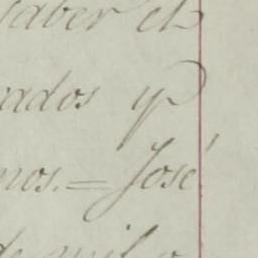 saber el
ados y
mos.= José
de mil y